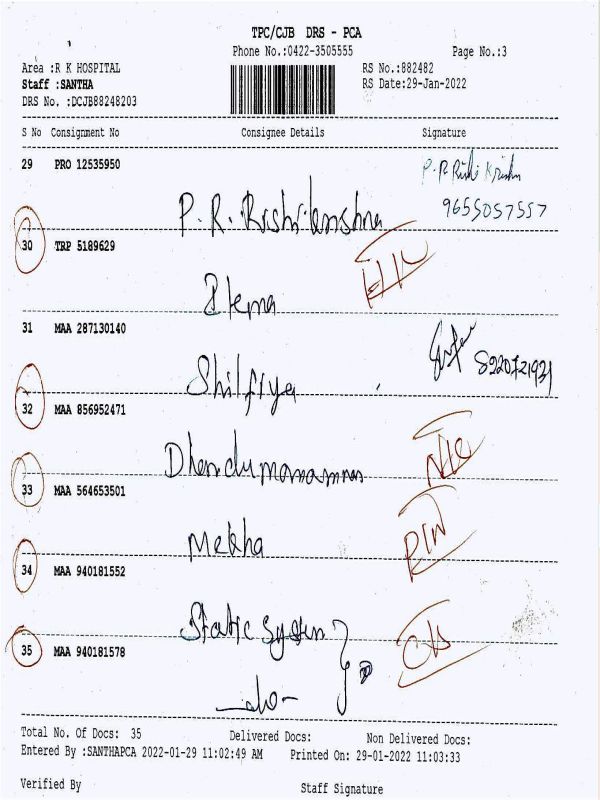 TPC/CJB DRS - PCA
Phone No.:0422-3505555 Page No.:3
Area :R K HOSPITAL RS No.:882482
Staff :SANTHA RS Date:29-Jan-2022
DRS No. :DCJB88248203
S No Consignment No Consignee Details Signature
29 PRO 12535950 P.R. Rishi Krishn
P.R. Rishikrishna 9655057557
30 TRP 5189629
31 MAA 287130140
Shilfiya 8220721921
32 MAA 856952471
33 MAA 564653501
Mekha
34 MAA 940181552
Static System
35 MAA 940181578
-do-
Total No. Of Docs: 35 Delivered Docs: Non Delivered Docs:
Entered By :SANTHAPCA 2022-01-29 11:02:49 AM Printed On: 29-01-2022 11:03:33
Verified By Staff Signature